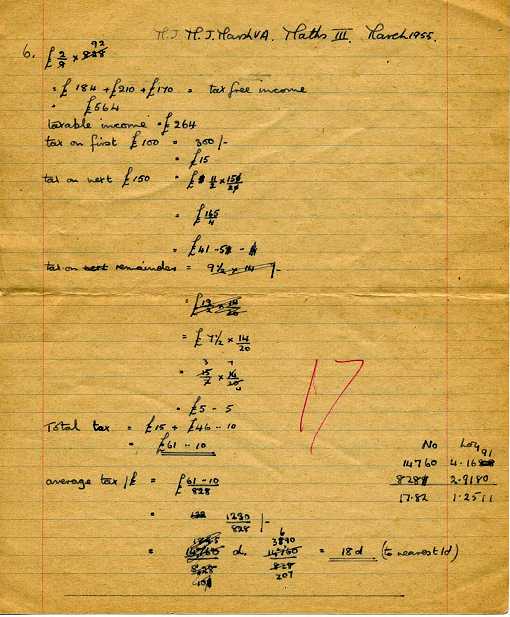 M.J. Marsh VA. Maths III. March 1955.
6. £ 2/9 × 828 92
= £ 184 + £210 + £170 = tax free income
= £564
taxable income = £264
tax on first £100 = 300/-
= £15
tax on next £150 = £ 11/2 × 150/20
= £ 165/4
= £41 - 5
tax on next remainder = 9½ × 14/-
= £ 19/2 × 14/20
= £ 7½ × 14/20
= 15/2 × 14/20 3 7 4
= £5 - 5
Total tax = £15 + £46 - 10
= £61 - 10
17
No Log
14760 4.1691
828 2.9180
17.82 1.2511
average tax/£ = £ 61-10/828
= 1230/828 /-
= 14760/828 d. 14760/828 3690/207 = 18d (to nearest 1d)